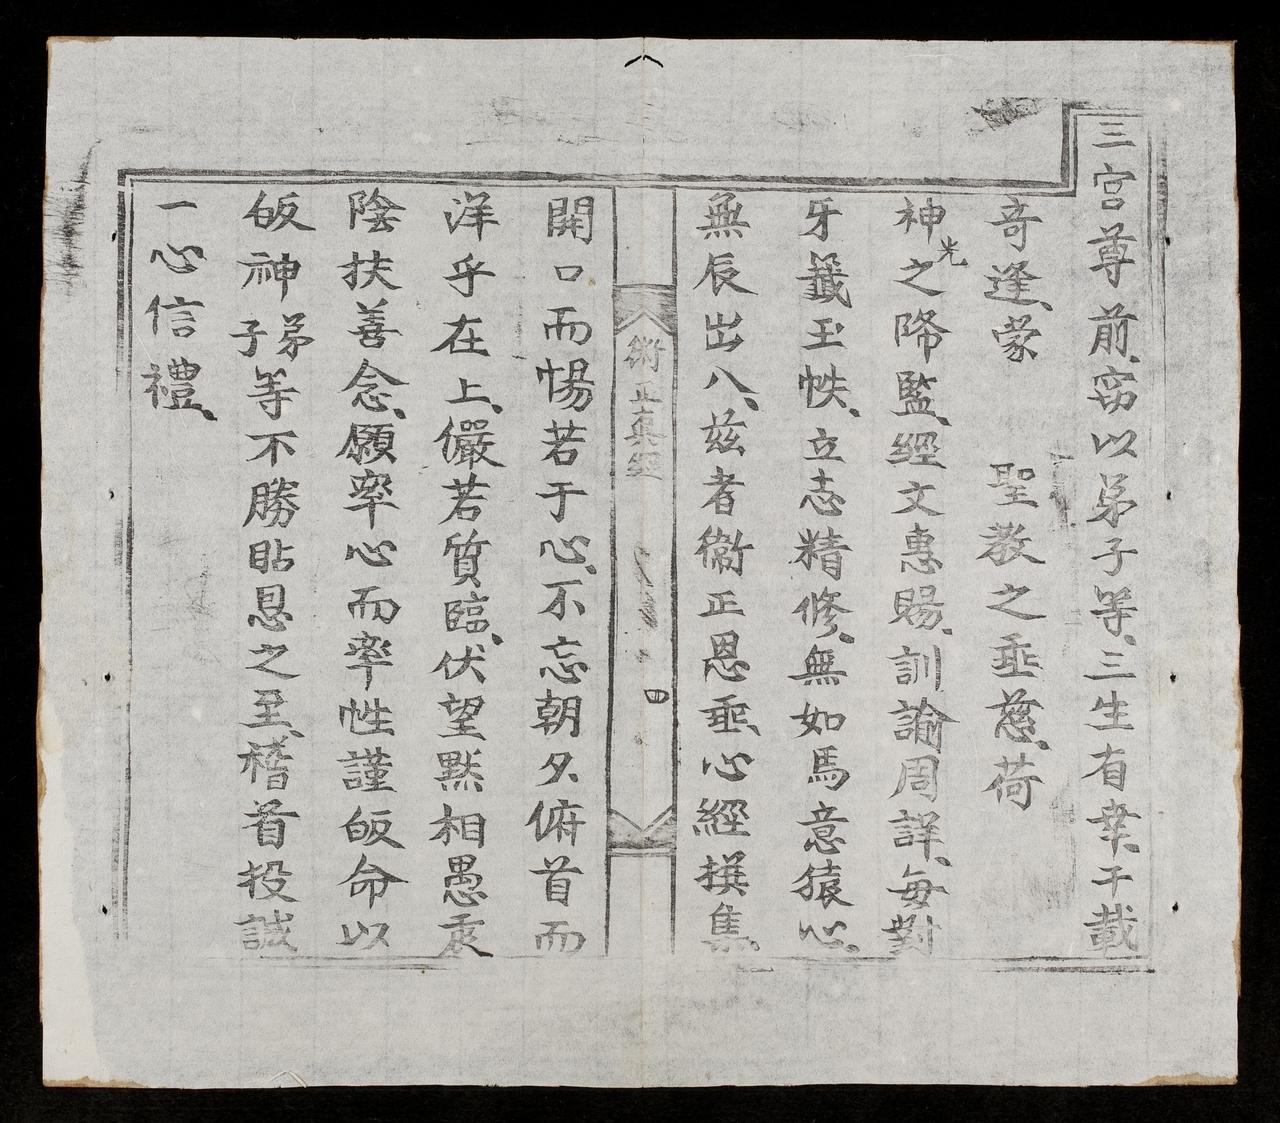 三宮尊前、窃以弟子等、三生有幸、千載
奇逢、蒙　聖教之垂慈、荷
神光之降監、經文惠賜、訓諭周詳、每對
牙籤玉帙、立志精修、無如馬意猿心、
無辰出入、兹者衞正恩垂、心經撰集、
衛正真經　四
開口而惕若于心、不忘朝夕、俯首而
洋乎在上、儼若質臨、伏望默相愚衷
陰扶善念、願率心而率性、謹皈命以
皈神、弟子等不勝貼恩之至、稽首投誠
一心信禮、